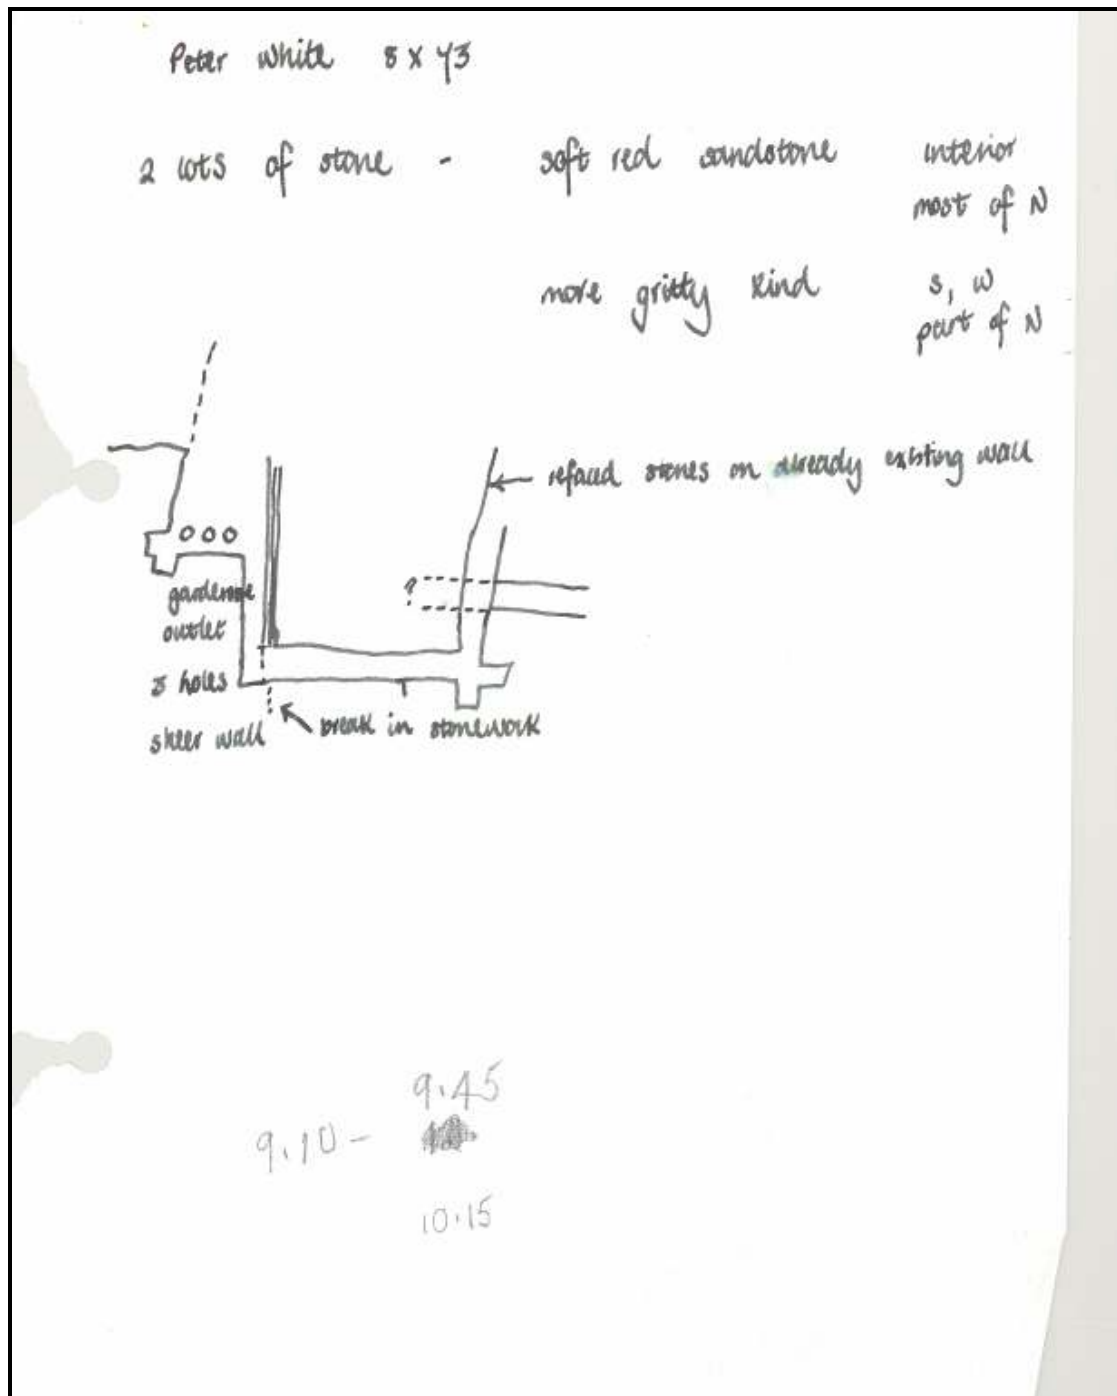 Peter White 8 X 73
2 lots of stone - soft red sandstone interior
most of N
more gritty kind S, W
part of N
refaced stones on already existing wall
?
garderobe
outlet
3 holes
sheer wall
break in stonework
9.45
9.10 -
10.15